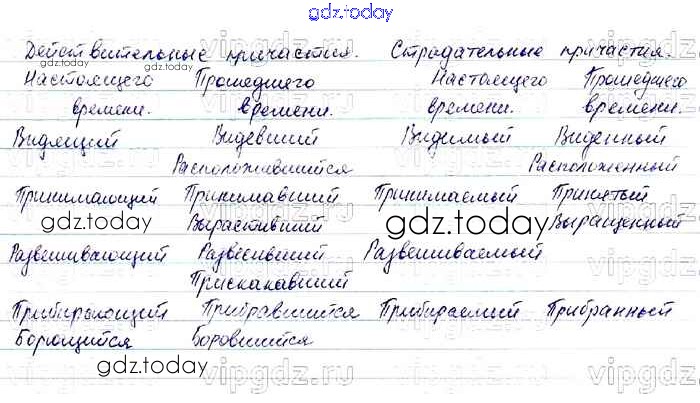 gdz.today
Действительные причастия. Страдательные причастия.
gdz.today
Настоящего Прошедшего Настоящего Прошедшего
времени. времени. времени. времени.
Видящий Видевший Видимый Виденный
Расположившийся Расположенный
Принимающий Принимавший Принимаемый Принятый
gdz.today gdz.today
Вырастивший Выращенный
Развешивающий Развесивший Развешиваемый
vipgdz.ru
Прискакавший
Прибирающий Прибравшийся Прибираемый Прибранный
Борющийся Боровшийся
gdz.today
vipgdz.ru vipgdz.ru